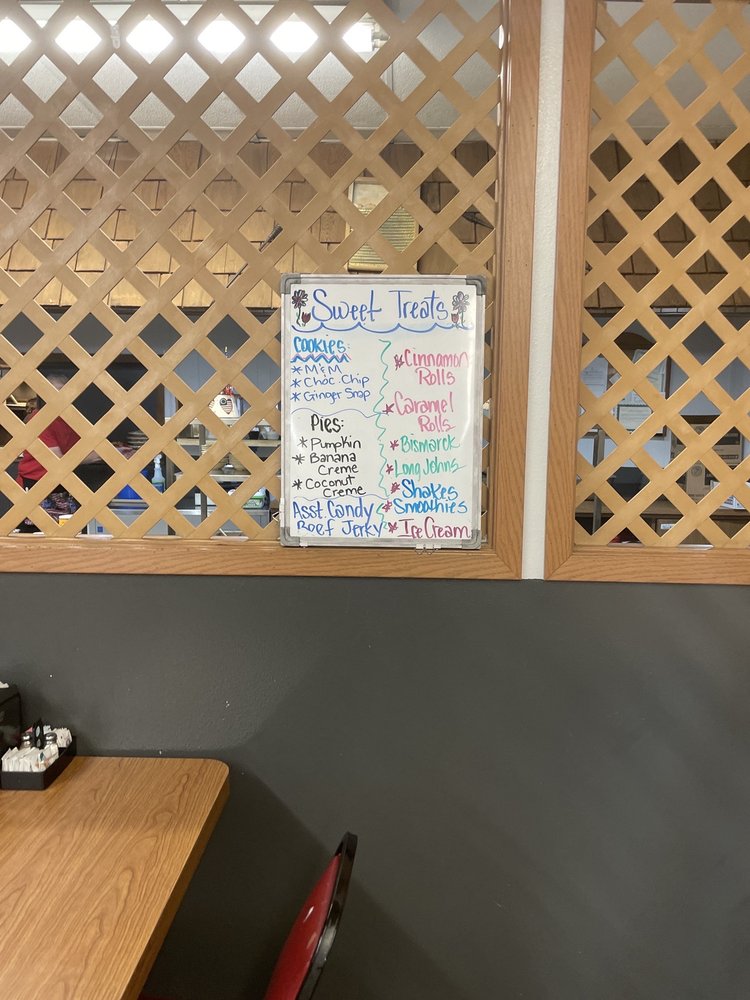 Sweet Treats
Cookies:
* M&M
* Choc. Chip
* Ginger Snap
Pies:
* Pumpkin
* Banana
Creme
* Coconut
Creme
Asst. Candy
Beef Jerky
* Cinnamon
Rolls
* Caramel
Rolls
* Bismarck
* Long Johns
* Shakes
* Smoothies
* Ice Cream